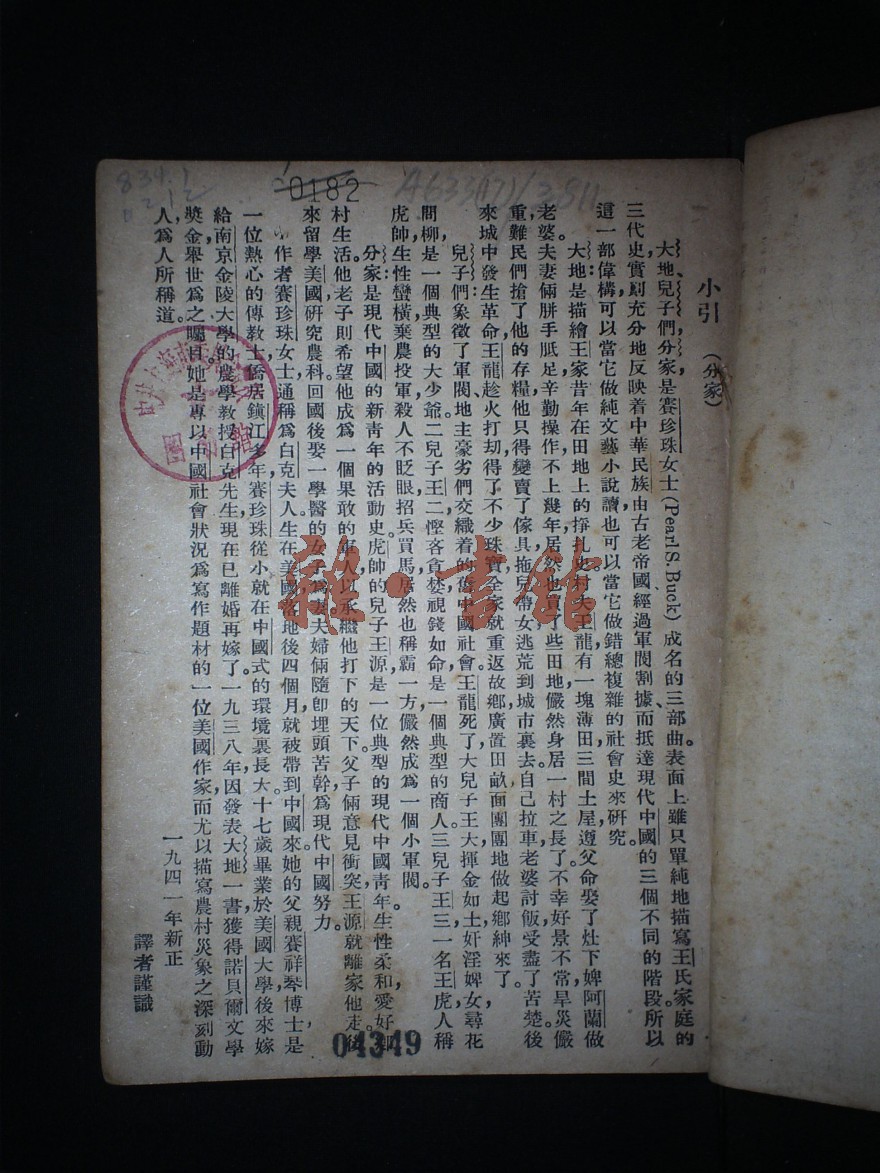 小引（分家）
大地、兒子們，分家，是賽珍珠女士(Pearl S. Buck)成名的三部曲。表面上雖只單純地描寫王氏家庭的
三代史實，則充分地反映着中華民族，由古老帝國，經過軍閥割據、而抵達現代中國的三個不同的階段。所以
這一部偉構可以當它做純文藝小說讀，也可以當它做錯總複雜的社會史來研究。
大地是描繪王家昔年在田地上的掙扎史。村夫王龍，有一塊薄田，三間土屋，遵父命娶了灶下婢阿蘭做
老婆。夫妻倆胼手胝足，辛勤操作，不上幾年，居然也買了些田地，儼然身居一村之長了。不幸好景不常，旱災儼
重，難民們搶了他的存糧，他只得變賣了傢具，拖兒帶女，逃荒到城市裏去。自己拉車，老婆討飯，受盡了苦楚。後
來城中發生革命，王龍趁火打劫，得了不少珠寶，全家就重返故鄉，廣置田畝，面團團地做起鄉紳來了。
兒子們：象徵了軍閥、地主豪劣們交織着的舊中國社會。王龍死了，大兒子王大揮金如土，奸淫婢女，尋花
問柳，是一個典型的大少爺。二兒子王二慳吝貪婪，視錢如命，是一個典型的商人。三兒子王三，一名王虎，人稱
虎帥，生性蠻橫，棄農投軍，殺人不眨眼，招兵買馬，居然也稱霸一方，儼然成為一個小軍閥。
分家：是現代中國的新青年的活動史。虎帥的兒子王源，是一位典型的現代中國青年，生性柔和，愛好
村生活。他老子則希望他成為一個果敢的軍人，以承繼他打下的天下。父子倆意見衝突，王源就離家他走。後
來留學美國，研究農科。回國後娶一學醫的女子為妻，夫婦倆隨卽埋頭苦幹，為現代中國努力。
作者賽珍珠女士，通稱為白克夫人。生在美國，落地後四個月，就被帶到中國來。她的父親賽祥琴博士，是
一位熱心的傳教士，僑居鎮江多年。賽珍珠從小就在中國式的環境裏長大。十七歲畢業於美國大學，後來嫁
給南京金陵大學的農學教授白克先生，現在已離婚再嫁了。一九三八年，因發表大地一書，獲得諾貝爾文學
獎金，舉世為之矚目。她是專以中國社會狀況為寫作題材的一位美國作家，而尤以描寫農村災象之深刻動
人，為人所稱道。
一九四一年新正
譯者謹識
0182
A633(17)/3811
834.1
04349
雜·書館